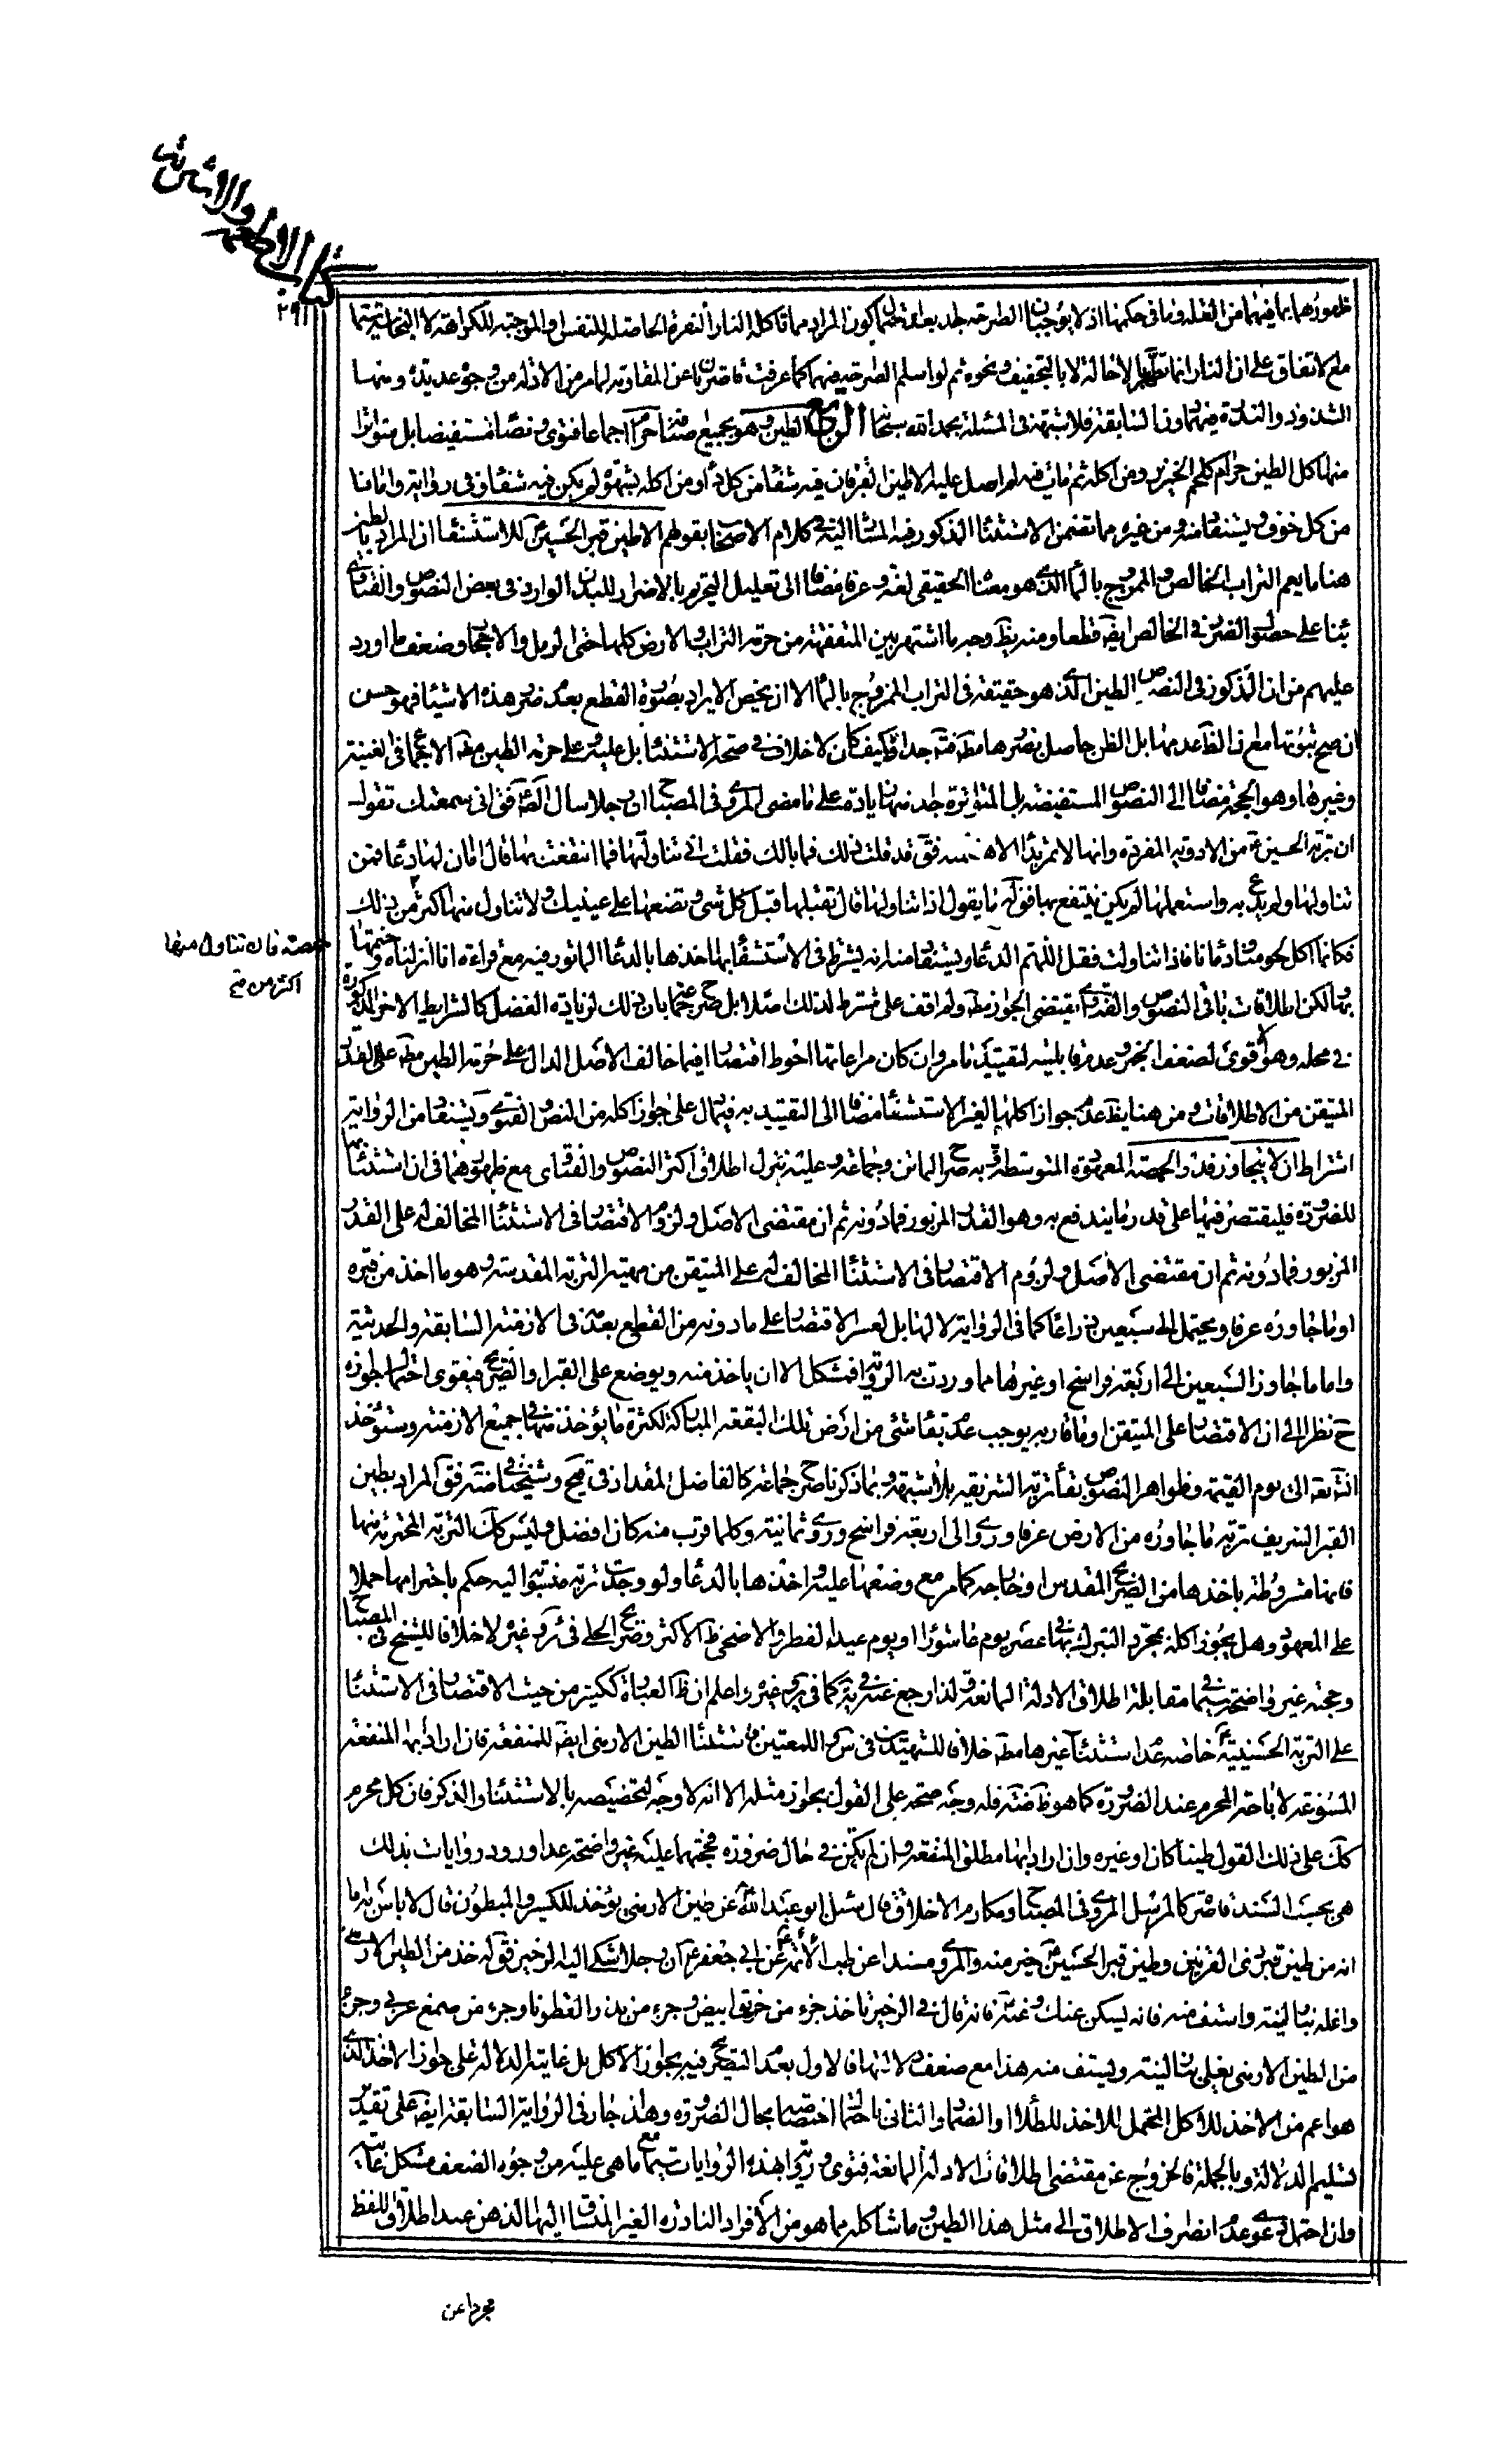 كتاب الاطعمه والاشربه
٢٩١
ظهورهما بما فيهما من العلة وما في حكمها اذ لا يوجبان الصراحة لجد بعد احتمال كون المراد مما تاكله النار النفرة الحاصلة للنفس والموجبة للكراهة لا النجاسة سيما
مع الاتفاق على ان النار انما تطهر بالاحالة لا بالتجفيف ونحوه ثم لو سلم الصراحة فيهما كما عرفت قاصران عن المقاومة لما مر من الادلة من وجوه عديدة ومنها
الشذوذ والندرة فيهما دون السابقة فلا شبهة في المسئلة بحمد الله سبحانه الرابع الطين وهو بجميع اصنافه حرام اجماعا فتوى ونصا مستفيضا بل متواترا
منها اكل الطين حرام كلحم الخنزير ومن اكله ثم مات فيه لم اصل عليه الا طين القبر فان فيه شفاء من كل داء ومن اكله بشهوة لم يكن فيه شفاء وفي رواية وامانا
من كل خوف ويستفاد منه ومن غيره مما تضمن الاستثناء المذكور فيه المشار اليه في كلام الاصحاب بقولهم الا طين قبر الحسين ع للاستشفاء ان المراد بالطين
هنا ما يعم التراب الخالص والممزوج بالماء الذي هو معناه الحقيقي لغة وعرفا مضافا الى تعليل التحريم بالاضرار للبدن الوارد في بعض النصوص والفتاوى
بناء على حصول الضرر في الخالص ايضا قطعا ومنه يظ وجه ما اشتهر بين المتفقهة من حرمة التراب والارض كلها حتى الرمل والاحجار وضعف ما اورد
عليهم من ان المذكور في النصوص الطين الذي هو حقيقة في التراب الممزوج بالماء الا ان يخص الايراد بصورة القطع بعدم ضرر هذه الاشياء فهو حسن
ان صح ثبوتها مع ان الظ عدمها بل الظن حاصل بضررها مطلقا جدا وكيف كان لا خلاف في صحة الاستثناء بل عليه وعلى حرمة الطين مطلقا الاجماع في الغنية
وغيرها وهو الحجة مضافا الى النصوص المستفيضة بل المتواترة جدا منها زيادة على ما مضى المروي في المصباح ان رجلا سال الصادق ع فقال اني سمعتك تقول
ان تربة الحسين ع من الادوية المفردة وانها لا تمر بداء الا هضمته فقال قد قلت ذلك فما بالك فقلت اني تناولتها فما انتفعت بها قال اما ان لها دعاء فمن
تناولها ولم يدع به واستعملها لم يكن ينتفع بها فقال له ما يقول اذا تناولها قال تقبلها قبل كل شيء وتضعها على عينيك ولا تناول منها اكثر من ذلك
حمصة فان تناول منها
اكثر من صح
فكانما اكل لحومنا ودماءنا فاذا تناولت فقل اللهم الدعاء ويستفاد منه انه يشترط في الاستشفاء بها اخذها بالدعاء الماثور فيه مع قراءة انا انزلناه وختمها
بها لكن اطلاقات باقي النصوص والفتوى يقتضي الجواز مطلقا ولم اقف على مشترط لذلك اصلا بل صرح جماعة بان ذلك لزيادة الفضل كالشرايط الاخر المذكورة
في محله وهو الاقوى لضعف الخبر وعدم قابليته لتقييد ما مر وان كان مراعاتها احوط اقتصارا فيما خالف الاصل الدال على حرمة الطين مطلقا على القدر
المتيقن من الاطلاقات ومن هنا يظ عدم جواز اكلها لغير الاستشفاء مضافا الى التقييد به فيما دل على جواز اكله من النص والفتوى ويستفاد من الرواية
اشتراط ان لا يتجاوز قدر الحمصة المعهودة المتوسطة وبه صرح الماتن وجماعة وعليه ينزل اطلاق اكثر النصوص والفتاوى مع ظهورهما في ان استثناءها
للضرورة فليقتصر فيها على قدر ما يندفع به وهو القدر المزبور فما دونه ثم ان مقتضى الاصل ولزوم الاقتصار في الاستثناء المخالف له على القدر
المزبور فما دونه ثم ان مقتضى الاصل ولزوم الاقتصار في الاستثناء المخالف له على المتيقن من مهية التربة المقدسة وهو ما اخذ من قبره
او ما جاوره عرفا ويحتمل الى سبعين ذراعا كما في الرواية لا لها بل لعسر الاقتصار على ما دونه من القطع بعدمه في الازمنة السابقة والحديثة
واما ما جاوز السبعين الى اربعة فراسخ او غيرها مما وردت به الرواية فمشكل الا ان ياخذ منه ويوضع على القبر او الضريح فيقوى احتمال جوازه
ح نظرا الى ان الاقتصار على المتيقن او ما قاربه يوجب عدم بقاء شيء من ارض تلك البقعة المباركة لكثرة ما يؤخذ منها في جميع الازمنة وستؤخذ
انشاء الله الى يوم القيمة وظواهر النصوص بقاء تربته الشريفة بلا شبهة وبما ذكرنا صرح جماعة كالفاضل المقداد في التنقيح وشيخنا في ضه فقال المراد بطين
القبر الشريف تربة ما جاوره من الارض عرفا وروى الى اربعة فراسخ وروى ثمانية وكلما قرب منه كان افضل وليس كك التربة المحترمة منها
فانها مشروطة باخذها من الضريح المقدس او خارجه كما مر مع وضعها عليه واخذها بالدعاء ولو وجد تربة منسوبة اليه حكم باحترامها حملا
على المعهود وهل يجوز اكله بمجرد التبرك بها في عصر يوم عاشورا او يوم عيد الفطر والاضحى ظ الاكثر وصريح الحلي في ئر وغيره لا خلافا للشيخ في المصباح
وحجته غير واضحة سيما في مقابلة اطلاق الادلة المانعة ولذا رجع عنه في ية كما في ئر وغيره واعلم ان ظ العبارة ككثير من حيث الاقتصار في الاستثناء
على التربة الحسينية ع خاصة عدم استثناء غيرها مطلقا خلافا للشهيدين في س واللمعتين فاستثنا الطين الارمني ايضا للمنفعة فان ارادا بها المنفعة
المسوغة لاباحة المحرم عند الضرورة كما هو ظ ضه فله وجه صحة على القول بجواز مثله الا انه لا وجه لتخصيصه بالاستثناء والذكر فان كل محرم
كك على ذلك القول طينا كان او غيره وان ارادا بها مطلق المنفعة وان لم يكن في حال ضرورة فحجتهما عليه غير واضحة عدا ورود روايات بذلك
هي بحسب السند قاصرة كالمرسل المروي في المصباح ومكارم الاخلاق قال سئل ابو عبد الله ع عن طين الارمني يؤخذ للكسير والمبطون قال لا باس به اما
انه من طين قبر ذي القرنين وطين قبر الحسين ع خير منه والمروي مسندا عن طب الائمة ع عن ابي جعفر ع ان رجلا شكى اليه الزحير فقال له خذ من الطين الارمني
واغله بنار لينة واستف منه فانه يسكن عنك وعنه ع فانه قال في الزحير تاخذ جزء من خربق ابيض وجزء من بذر القطونا وجزء من صمغ عربي وجزء
من الطين الارمني يغلى بنار لينة ويستف منه هذا مع ضعف دلالتها فالاول بعدم التصريح فيه بجواز الاكل بل غايته الدلالة على جواز الاخذ الذي
هو اعم من الاخذ للاكل المحتمل للاخذ للطلاء او الضماد والثاني باحتمال اختصاصه بحال الضرورة وهذا جار في الرواية السابقة ايضا على تقدير
تسليم الدلالة وبالجملة فالخروج عن مقتضى اطلاقات الادلة المانعة فتوى ورواية بهذه الروايات سيما مع ما هي عليه من وجوه الضعف مشكل غايته
وان احتمل دعوى عدم انصراف الاطلاق الى مثل هذا الطين وما شاكله مما هو من الافراد النادرة الغير المنساق اليها الذهن عند اطلاق اللفظ
مجردا عن